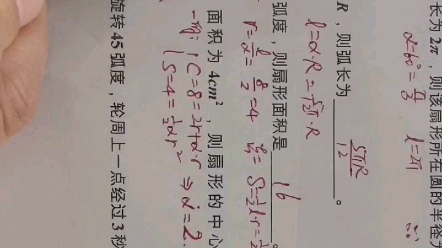 长为 2π，则该扇形所在圆的半径为
α=60°=π/3 l=2π ∴
R，则弧长为 5πR/12 。
l=α·R=5/12π·R
弧度，则扇形面积是 16 。
r=l/α=8/2=4 S=1/2l·r=1/2
面积为 4cm²，则扇形的中心
C=8=2r+α·r
S=4=1/2αr² ⇒ α=2.
旋转 45 弧度，轮周上一点经过 3 秒